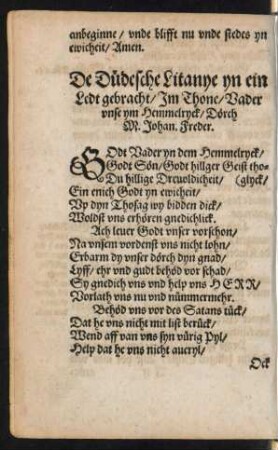 anbeginne / vnde blifft nu vnde stedes yn
ewicheit / Amen.
De Düdesche Litanye yn ein
Ledt gebracht / Jm Thone / Vader
vnse ym Hemmelryck / Dörch
M. Johan. Freder.
GOdt Vader yn dem Hemmelryck /
Godt Sön / Godt hillger Geist tho⸗
Du hillige Drewoldicheit / (glyck /
Ein enich Godt yn ewicheit /
Vp dyn Thosag wy bidden dick /
Woldst vns erhören gnedichlick.
Ach leuer Godt vnser vorschon /
Na vnsem vordenst vns nicht lohn /
Erbarm dy vnser dörch dyn gnad /
Lyff / ehr vnd gudt behöd vor schad /
Sy gnedich vns vnd help vns HERR /
Vorlath vns nu vnd nümmermehr.
Behöd vns vor des Satans tück /
Dat he vns nicht mit list berück /
Wend aff van vns syn vürig Pyl /
Help dat he vns nicht aueryl /
Ock